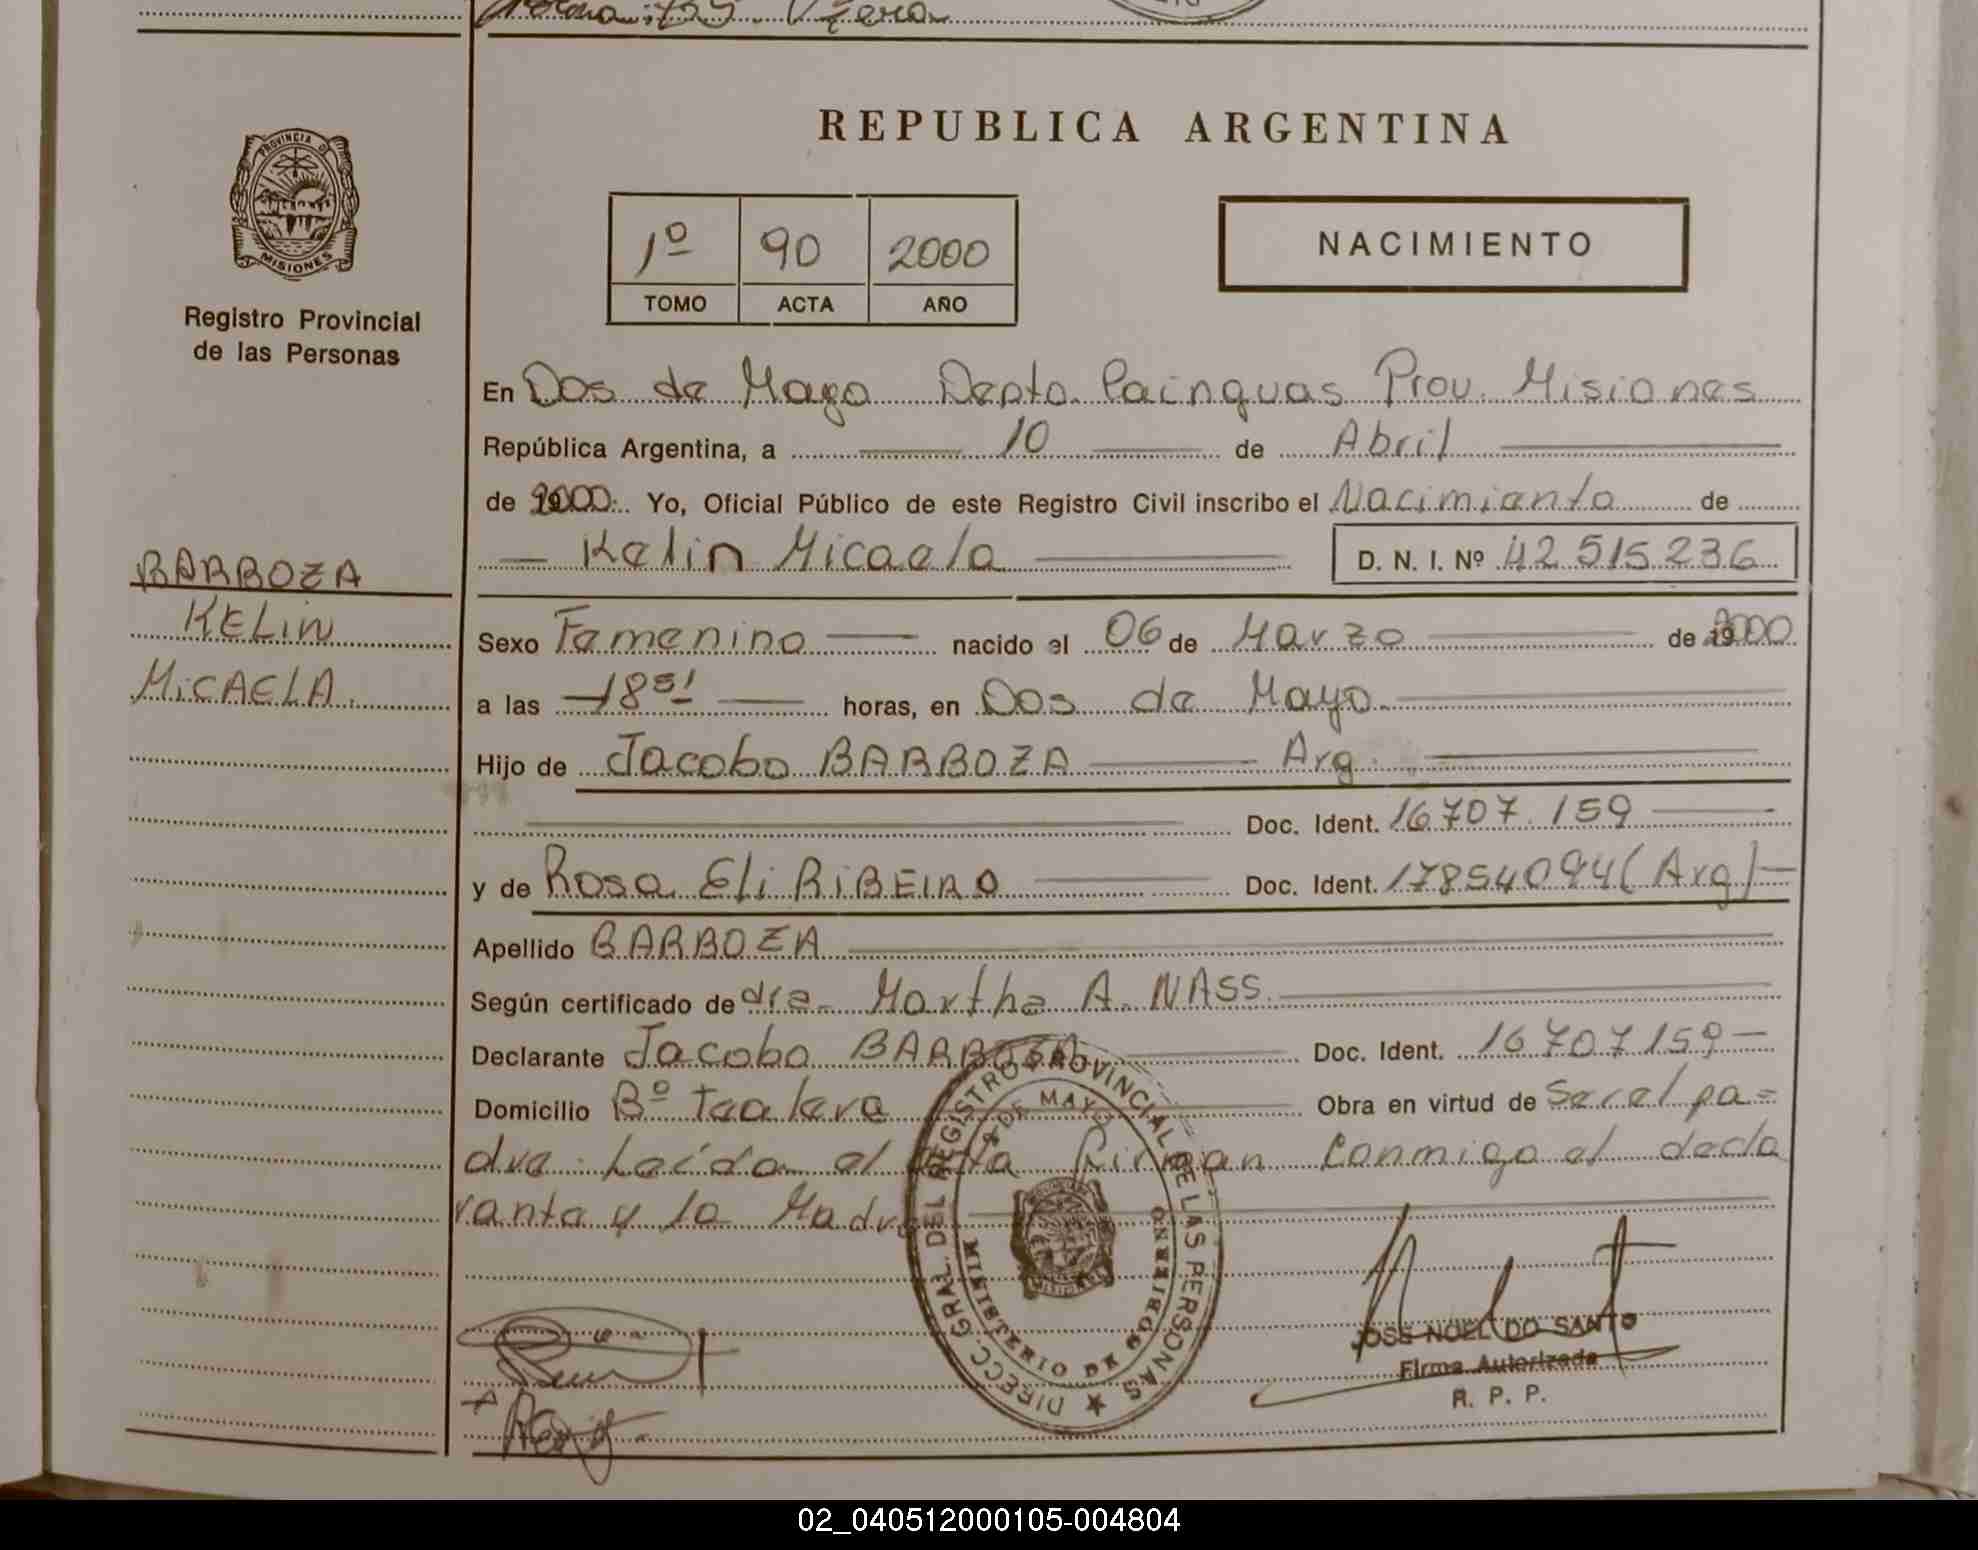 REPUBLICA ARGENTINA
PROVINCIA D
MISIONES
Registro Provincial
de las Personas
1º 90 2000
TOMO ACTA AÑO
NACIMIENTO
En Dos de Mayo Depto. Cainguas Prov. Misiones
República Argentina, a 10 de Abril
de 2000. Yo, Oficial Público de este Registro Civil inscribo el Nacimiento de
Kelin Micaela
D. N. I. Nº 42.515.236
BARBOZA
KELIN
MICAELA.
Sexo Femenino nacido el 06 de Marzo de 2000
a las 18 51 horas, en Dos de Mayo.
Hijo de Jacobo BARBOZA Arg.
Doc. Ident. 16.707.159
y de Rosa Eli RIBEIRO Doc. Ident. 17854094 (Arg)
Apellido BARBOZA
Según certificado de dra. Martha A. NASS.
Declarante Jacobo BARBOZA Doc. Ident. 16707159
Domicilio Bº Obra en virtud de ser el pa=
dre. Leída el acta firman conmigo el decla
rante y la Madre
DIRECC. GRAL. DEL REGISTRO PROVINCIAL DE LAS PERSONAS
2 DE MAYO
MINISTERIO DE GOBIERNO
JOSE NOEL DO SANTO
Firma Autorizada
R. P. P.
02_040512000105-004804